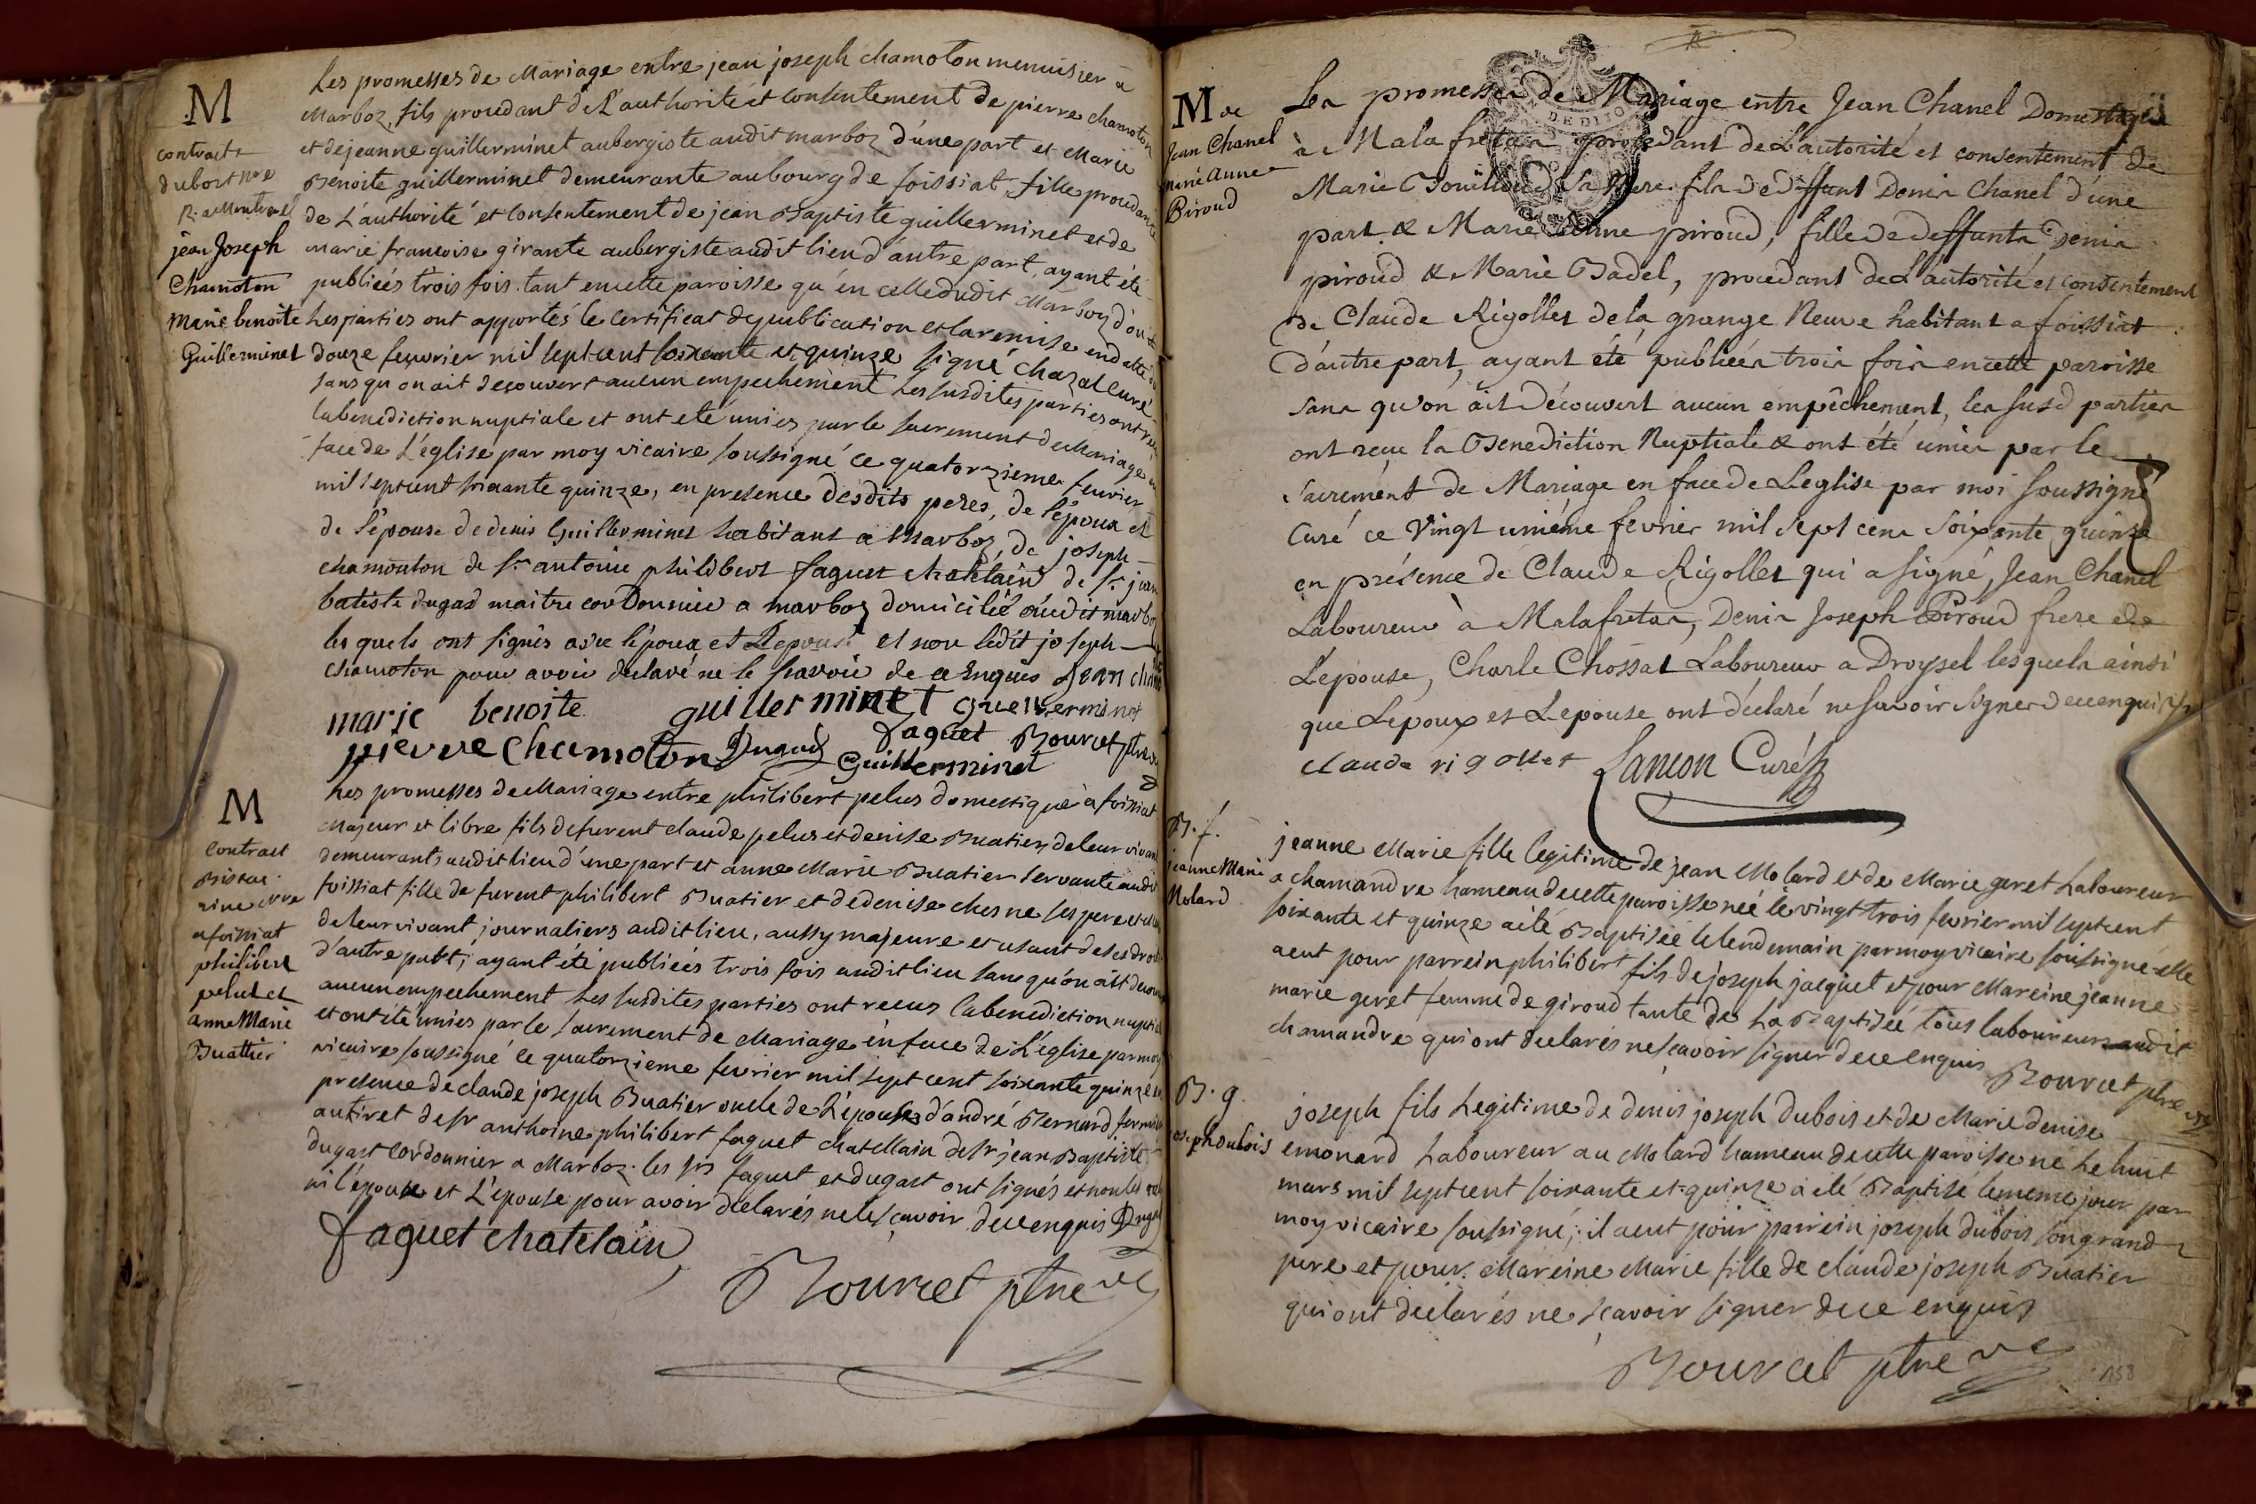 M
contract
dubost nre
R. a Montrevel
jean Joseph
Chamoton
Marie benoite
Guillerminet
Les promesses de Mariage entre jean joseph chamoton menuisier à
Marboz, fils procedant de L'authorité et consentement de pierre chamoton
et de jeanne guillerminet aubergiste audit marboz d'une part et Marie
Benoite guillerminet demeurante au bourg de foissiat fille procedante
de L'authorité et consentement de jean Baptiste guillerminet et de
marie francoise girante aubergiste audit lieu d'autre part, ayant été
publiées trois fois tant en cette paroisse qu'en celle dudit Marboz d'où
Les parties ont apportés le Certificat de publication et la remise en datte du
douze fevrier mil sept cent soixante et quinze signé chazal curé
sans qu'on ait decouvert aucun empechement Les susdites parties ont reçu
la benediction nuptiale et ont eté unies par le sacrement de Mariage en
face de L'église par moy vicaire soussigné ce quatorzieme fevrier
mil sept cent soixante quinze, en presence desdits peres, de l'epoux et
de l'epouse de denis Guillerminet habitant a Marboz, de joseph
chamouton de sr antoine philibert faguet chatelain de sr jean
batiste dugad maitre cordonnier a marboz domicilié audit marboz
les quels ont signés avec l'epoux et L'epouse et non ledit joseph
chamoton pour avoir declaré ne le savoir de ce Enquis Jean
marie benoite guillerminet guillerminet
pierre Chamoton Dugad faguet Bourcet ptre
Guillerminet
M
Contract
a foissiat
philibert
pelus et
anne Marie
Buathier
Les promesses de Mariage entre philibert pelus domestique à foissiat
Majeur et libre fils de furent claude pelus et denise Buatier de leur vivant
demeurants audit lieu d'une part et anne Marie Buatier servante audit
foissiat fille de furent philibert Buatier et de denise chesne ses pere et
de leur vivant journaliers audit lieu, aussy majeure et usant de ses droits
d'autre part, ayant été publiées trois fois audit lieu sans qu'on ait decouvert
aucun empechement Les susdites parties ont recus la benediction nuptiale
et ont été unies par le sacrement de Mariage en face de L'église par moy
vicaire soussigné ce quatorzieme fevrier mil sept cent soixante quinze en
presence de claude joseph Buatier oncle de L'epouse, d'andré Bernard fermier
autiret de sr anthoine philibert faguet chatellain de sr jean Baptiste
dugast cordonnier a Marboz. les srs faguet et dugast ont signés et non les
ni l'époux et L'epouse pour avoir déclarés ne le sçavoir de ce enquis Dugad
faguet chatelain
Bourcet ptre vre
M de
Jean Chanel
Marie Anne
Piroud
Les promesses de Mariage entre Jean Chanel Domestique
à Malafretaz procedant de L'autorité et consentement de
Marie Bouillou sa Mere fils de deffunt Denis Chanel d'une
part & Marie Anne piroud, fille de deffunts Denis
piroud & Marie Badel, procedant de L'autorité et consentement
de Claude Rigollet de la grange Neuve habitant a foissiat
d'autre part, ayant été publiées trois fois en cette paroisse
sans qu'on ait Découvert aucun empêchement, les susd parties
ont reçu la Benediction Nuptiale & ont été unies par le
sacrement de Mariage en face de L'eglise par moi soussigné
Curé ce Vingt unième fevrier mil sept cens soixante quinze
en présence de Claude Rigollet qui a signé, Jean Chanel
Laboureur à Malafretas, Denis Joseph Piroud frere de
L'epouse, Charle Chossat Laboureur a Droysel lesquels ainsi
que L'epoux et L'epouse ont déclaré ne savoir signer de ce enquis
claude rigollet Lancon Curé
B. f.
jeanne Marie
Molard
jeanne Marie fille legitime de jean Molard et de Marie geret Laboureur
a chamandre hameau de cette paroisse née le vingt trois fevrier mil sept cent
soixante et quinze a été Baptisée le lendemain par moy vicaire soussigné elle
a eut pour parrein philibert fils de joseph jacquet et pour Mareine jeanne
marie geret femme de giroud tante de La Baptisée tous laboureurs audit
chamandre qui ont declarés ne sçavoir signer de ce enquis
Bourcet ptre vre
B. g.
joseph Dubois
joseph fils Legitime de denis joseph dubois et de Marie denise
emonard Laboureur au Molard hameau de cette paroisse né le huit
mars mil sept cent soixante et quinze a été Baptise le meme jour par
moy vicaire soussigné; il a eut pour parrein joseph dubois son grand
pere et pour Mareine Marie fille de claude joseph Buatier
qui ont declarés ne sçavoir signer de ce enquis
Bourcet ptre vre
158